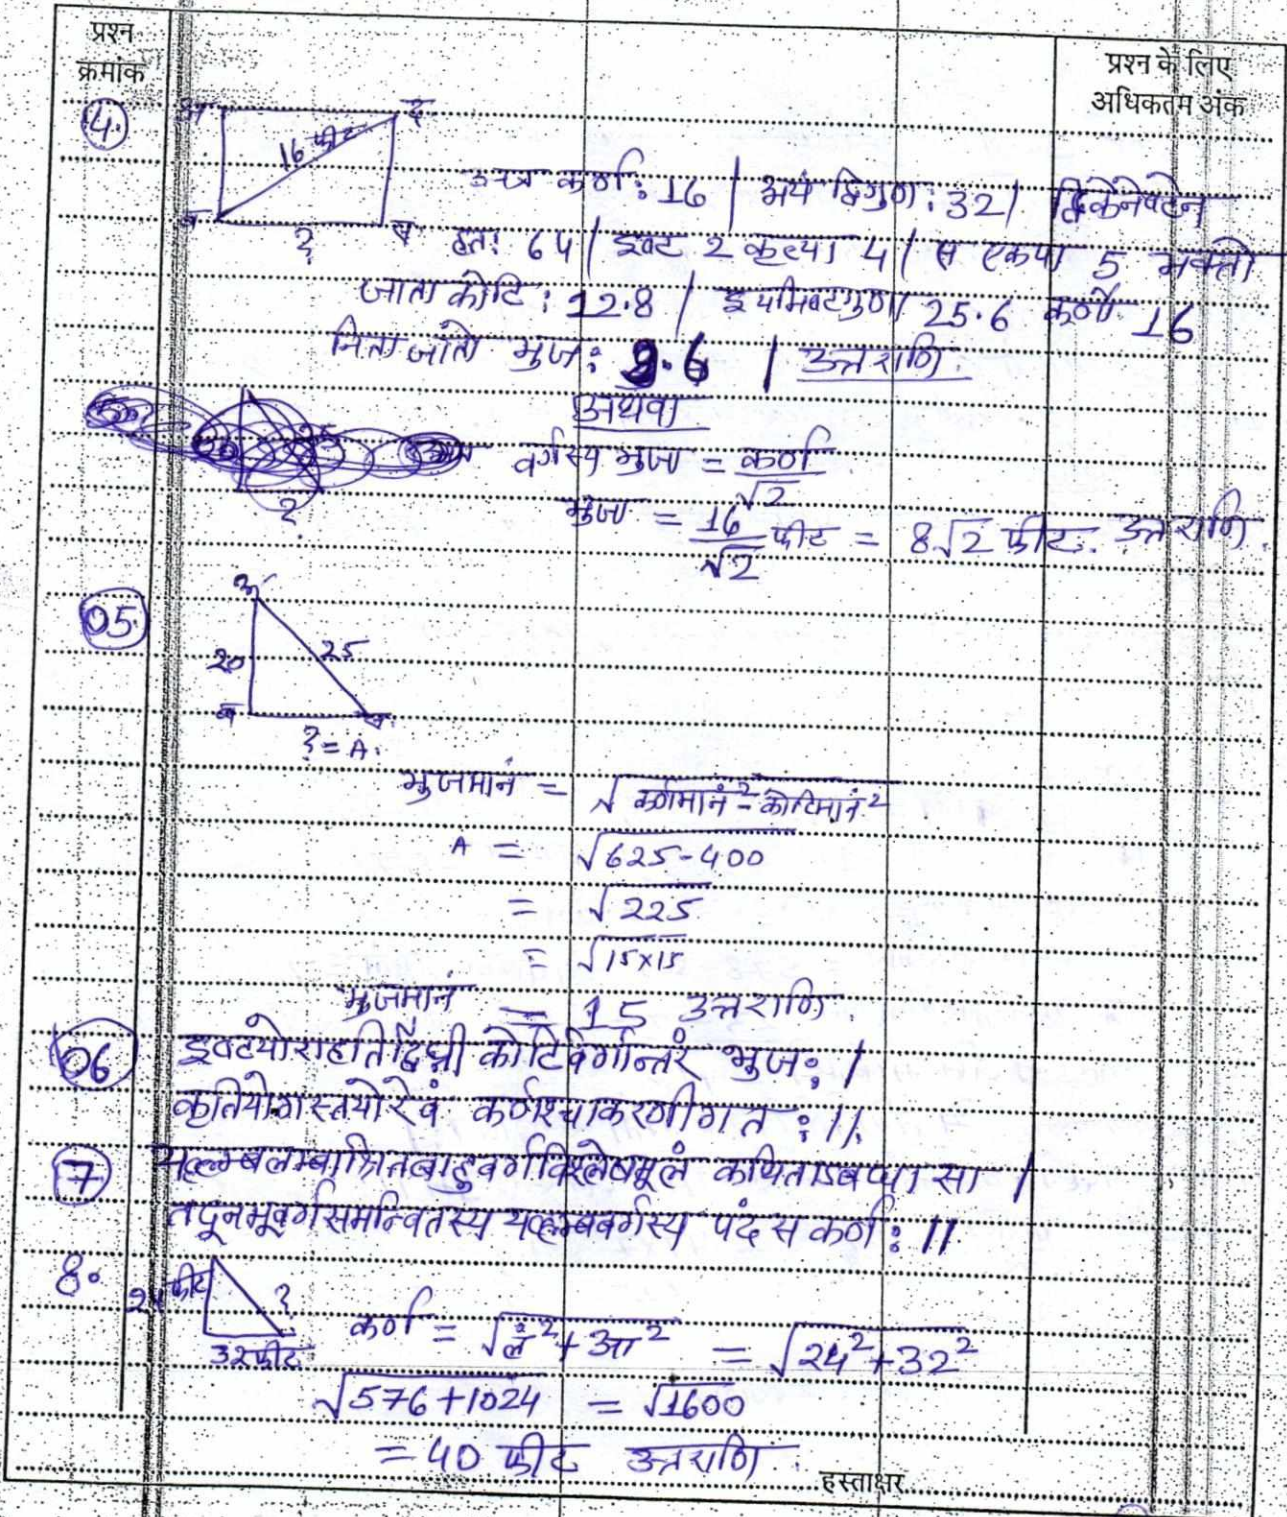 प्रश्न
क्रमांक
प्रश्न के लिए
अधिकतम अंक
4.
अ द
16 फीट
ब स
?
अत्र कर्ण: 16 / अयं द्विगुण: 32 /
हत: 64 / इष्ट 2 कृत्या 4 / स एकया 5 भक्तो
जाता कोटि: 12.8 / इयमिष्टगुणा 25.6 कर्णो 16
नितो जातो भुज: 9.6 / उत्तराणि.
अथवा
वर्गस्य भुजा = कर्ण / √2
भुजा = 16/√2 फीट = 8√2 फीट. उत्तराणि.
?
05.
अ
20 25
ब स
? = A.
भुजमानं = √कर्णमानं² - कोटिमानं²
A = √625-400
= √225
= √15×15
भुजमानं = 15 उत्तराणि.
06 इष्टयोराहतिर्द्विघ्नी कोटिर्वर्गान्तरं भुज: /
कृतियोगस्तयोरेवं कर्णश्चाकरणीगत: //.
7 यल्लम्बलम्बाश्रितबाहुवर्गविश्लेषमूलं कथिताऽवधा सा /
तदूनभूवर्गसमन्वितस्य यल्लम्बवर्गस्य पदं स कर्ण: //
8.
24 फीट ?
32 फीट
कर्ण = √लं² + आ² = √24²+32²
√576+1024 = √1600
= 40 फीट उत्तराणि.
हस्ताक्षर